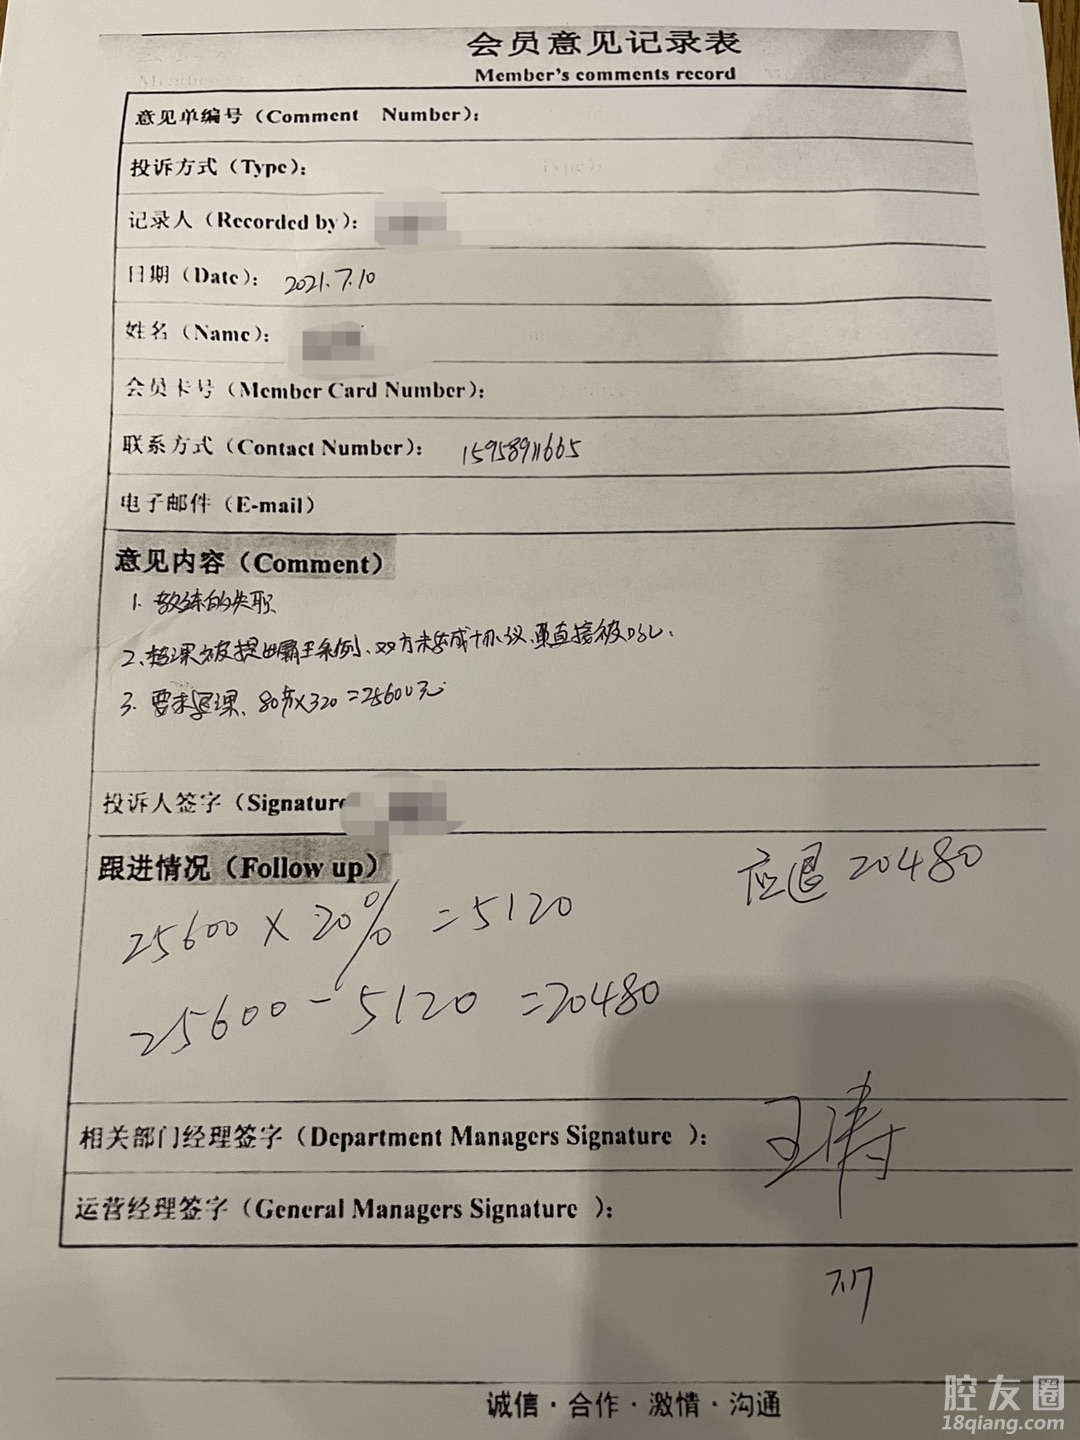 会员意见记录表
Member's comments record
意见单编号（Comment Number）:
投诉方式（Type）:
记录人（Recorded by）:
日期（Date）: 2021.7.10
姓名（Name）:
会员卡号（Member Card Number）:
联系方式（Contact Number）: 15958911665
电子邮件（E-mail）
意见内容（Comment）
1. 教练的失职
2、转课被提出霸王条例、双方未达成协议、直接被
3. 要求退课、80节×320=25600元
投诉人签字（Signature
跟进情况（Follow up）
应退 20480
25600 × 20% =5120
25600 - 5120 =20480
相关部门经理签字（Department Managers Signature ）:
运营经理签字（General Managers Signature ）:
7.17
诚信·合作·激情·沟通
腔友圈
18qiang.com